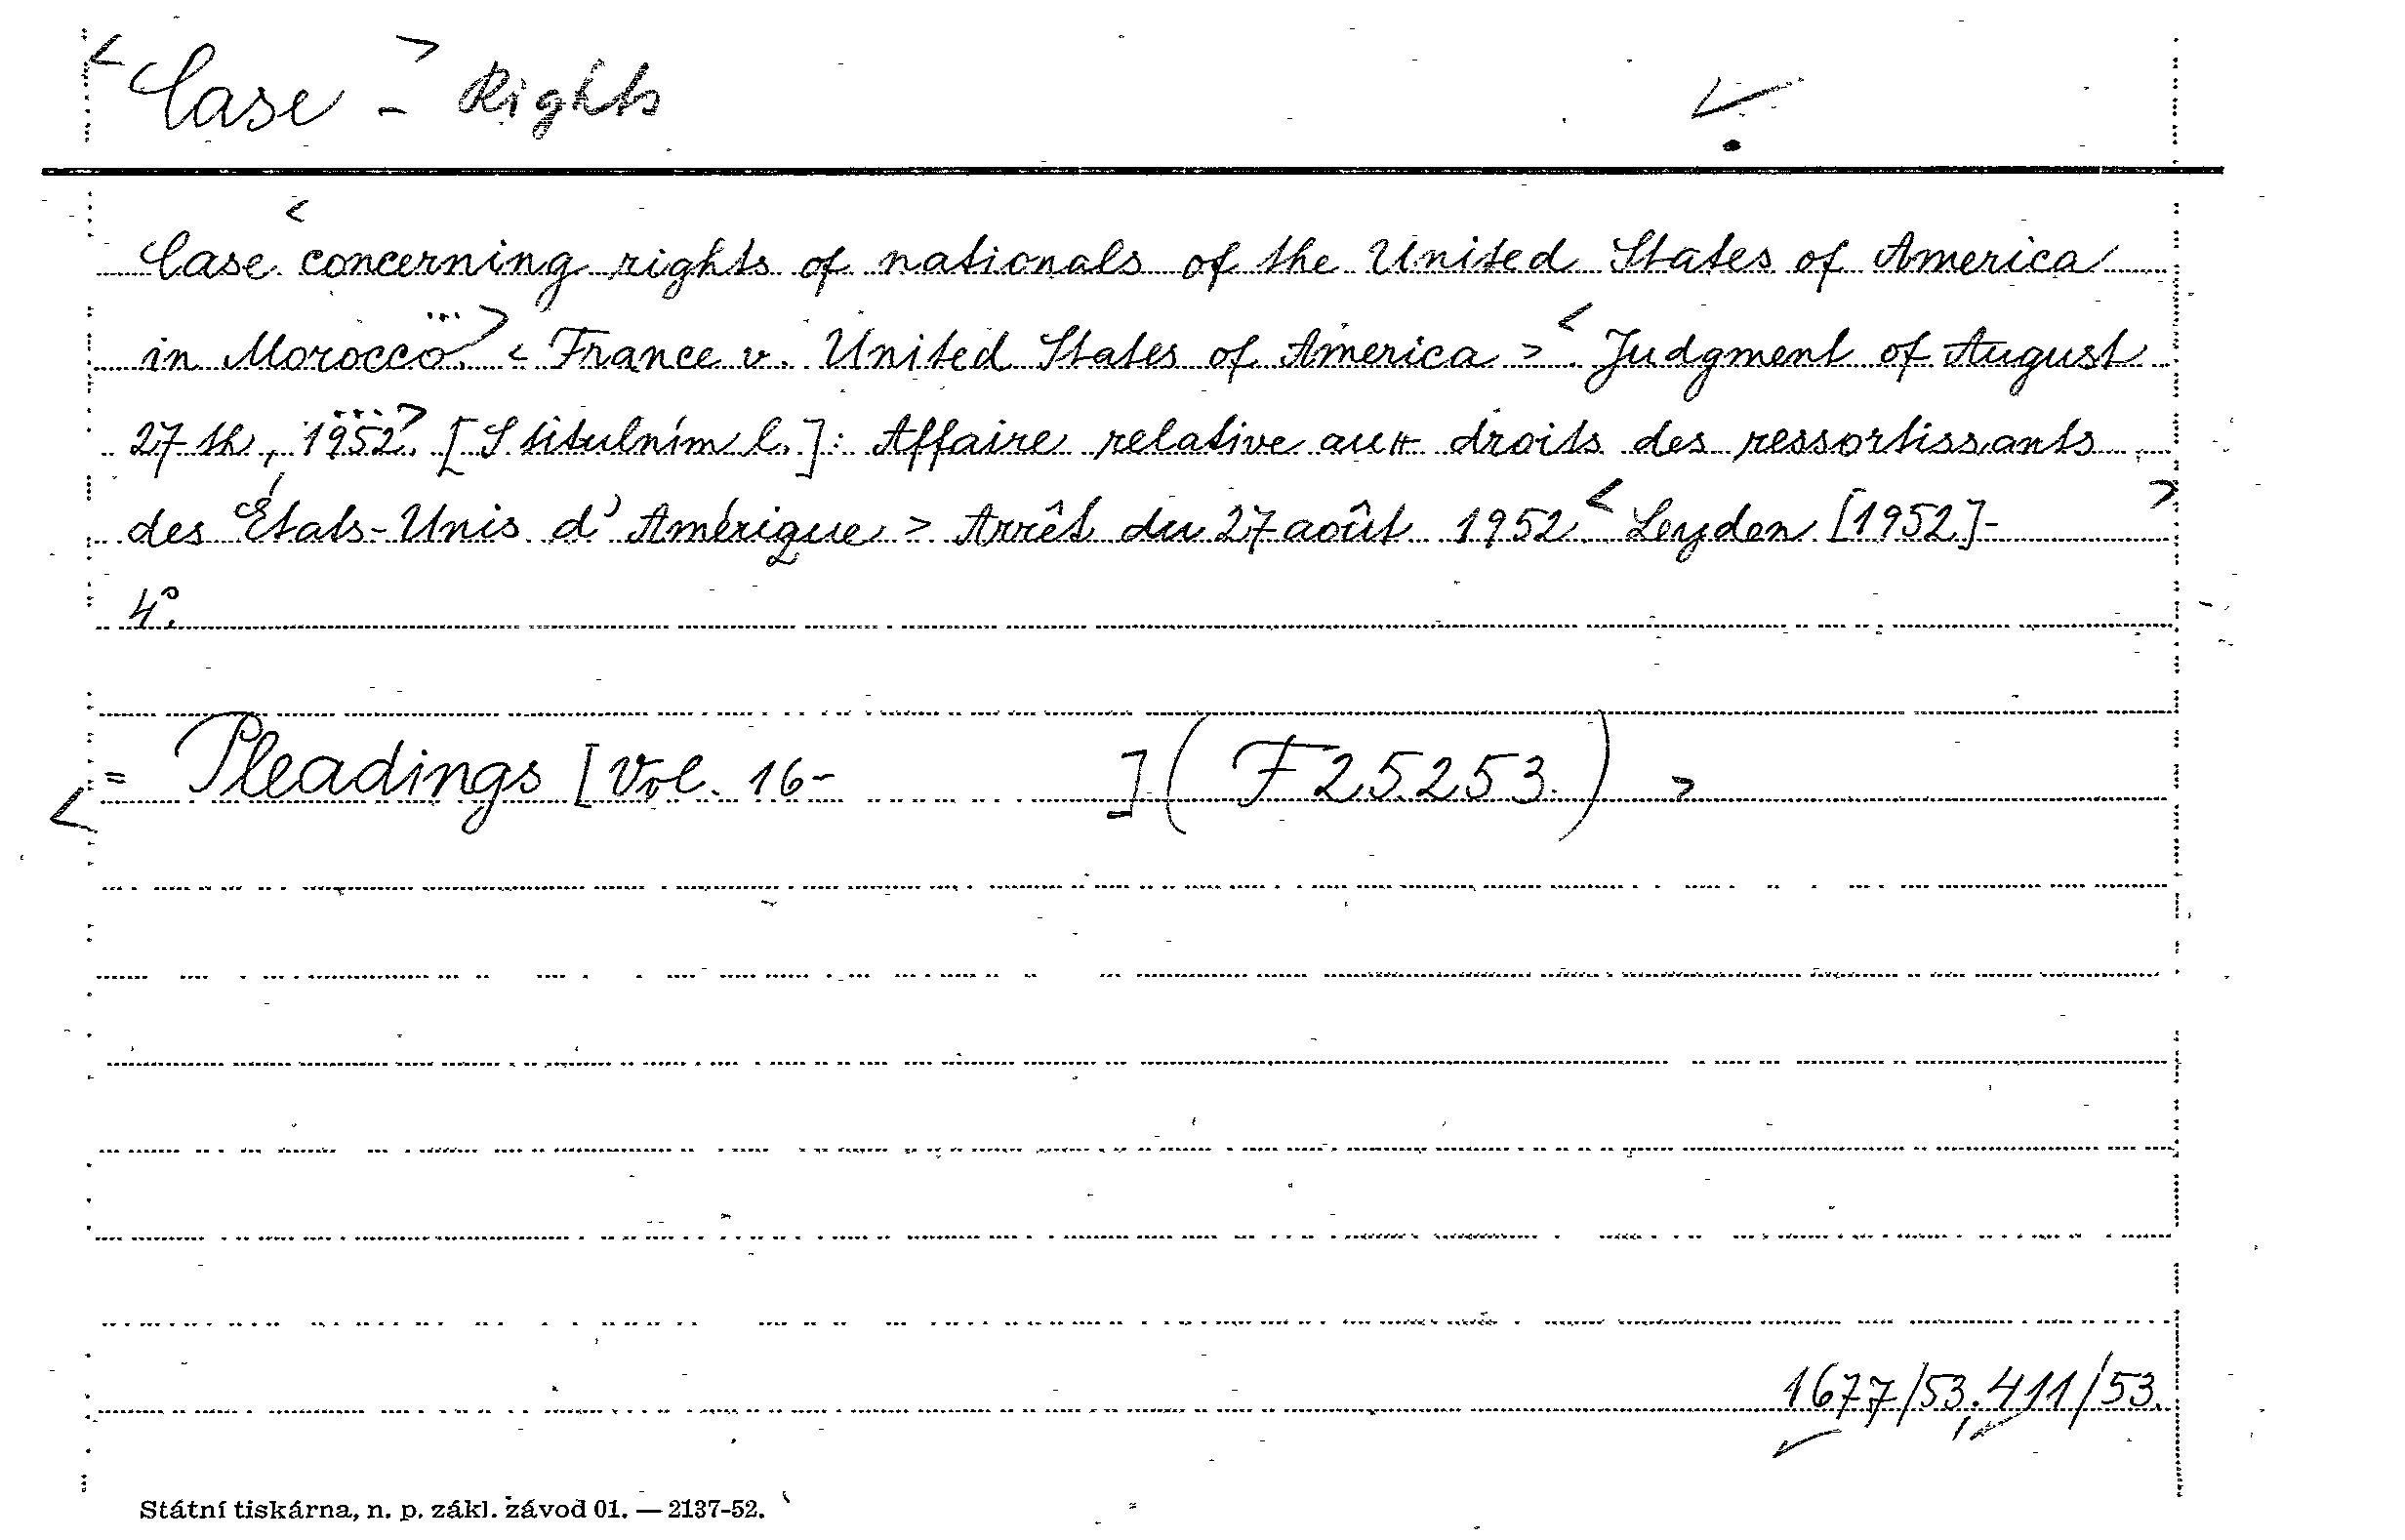 < Case > - Rights
Case < concerning rights of nationals of the United States of America
in Morocco. ... > < France v. United States of America > . < Judgment of August
27 th, 1952. ... > [S titulním l.]: Affaire relative aux droits des ressortissants
des États-Unis d'Amérique > Arrêt du 27 août 1952. < Leyden [1952]- >
4°.
< = Pleadings [Vol. 16- ] (F 25.253.) >
1677/53, 411/53.
Státní tiskárna, n. p. zákl. závod 01. — 2137-52.